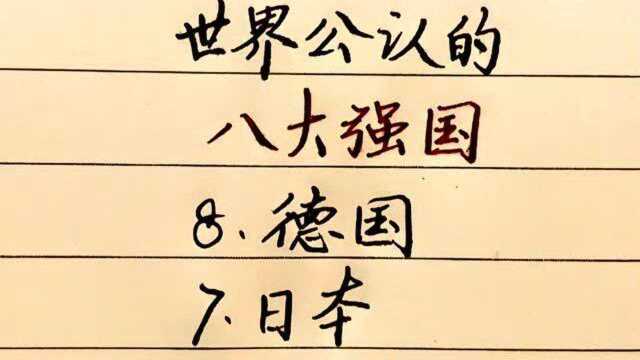 世界公认的
八大强国
8.德国
7.日本